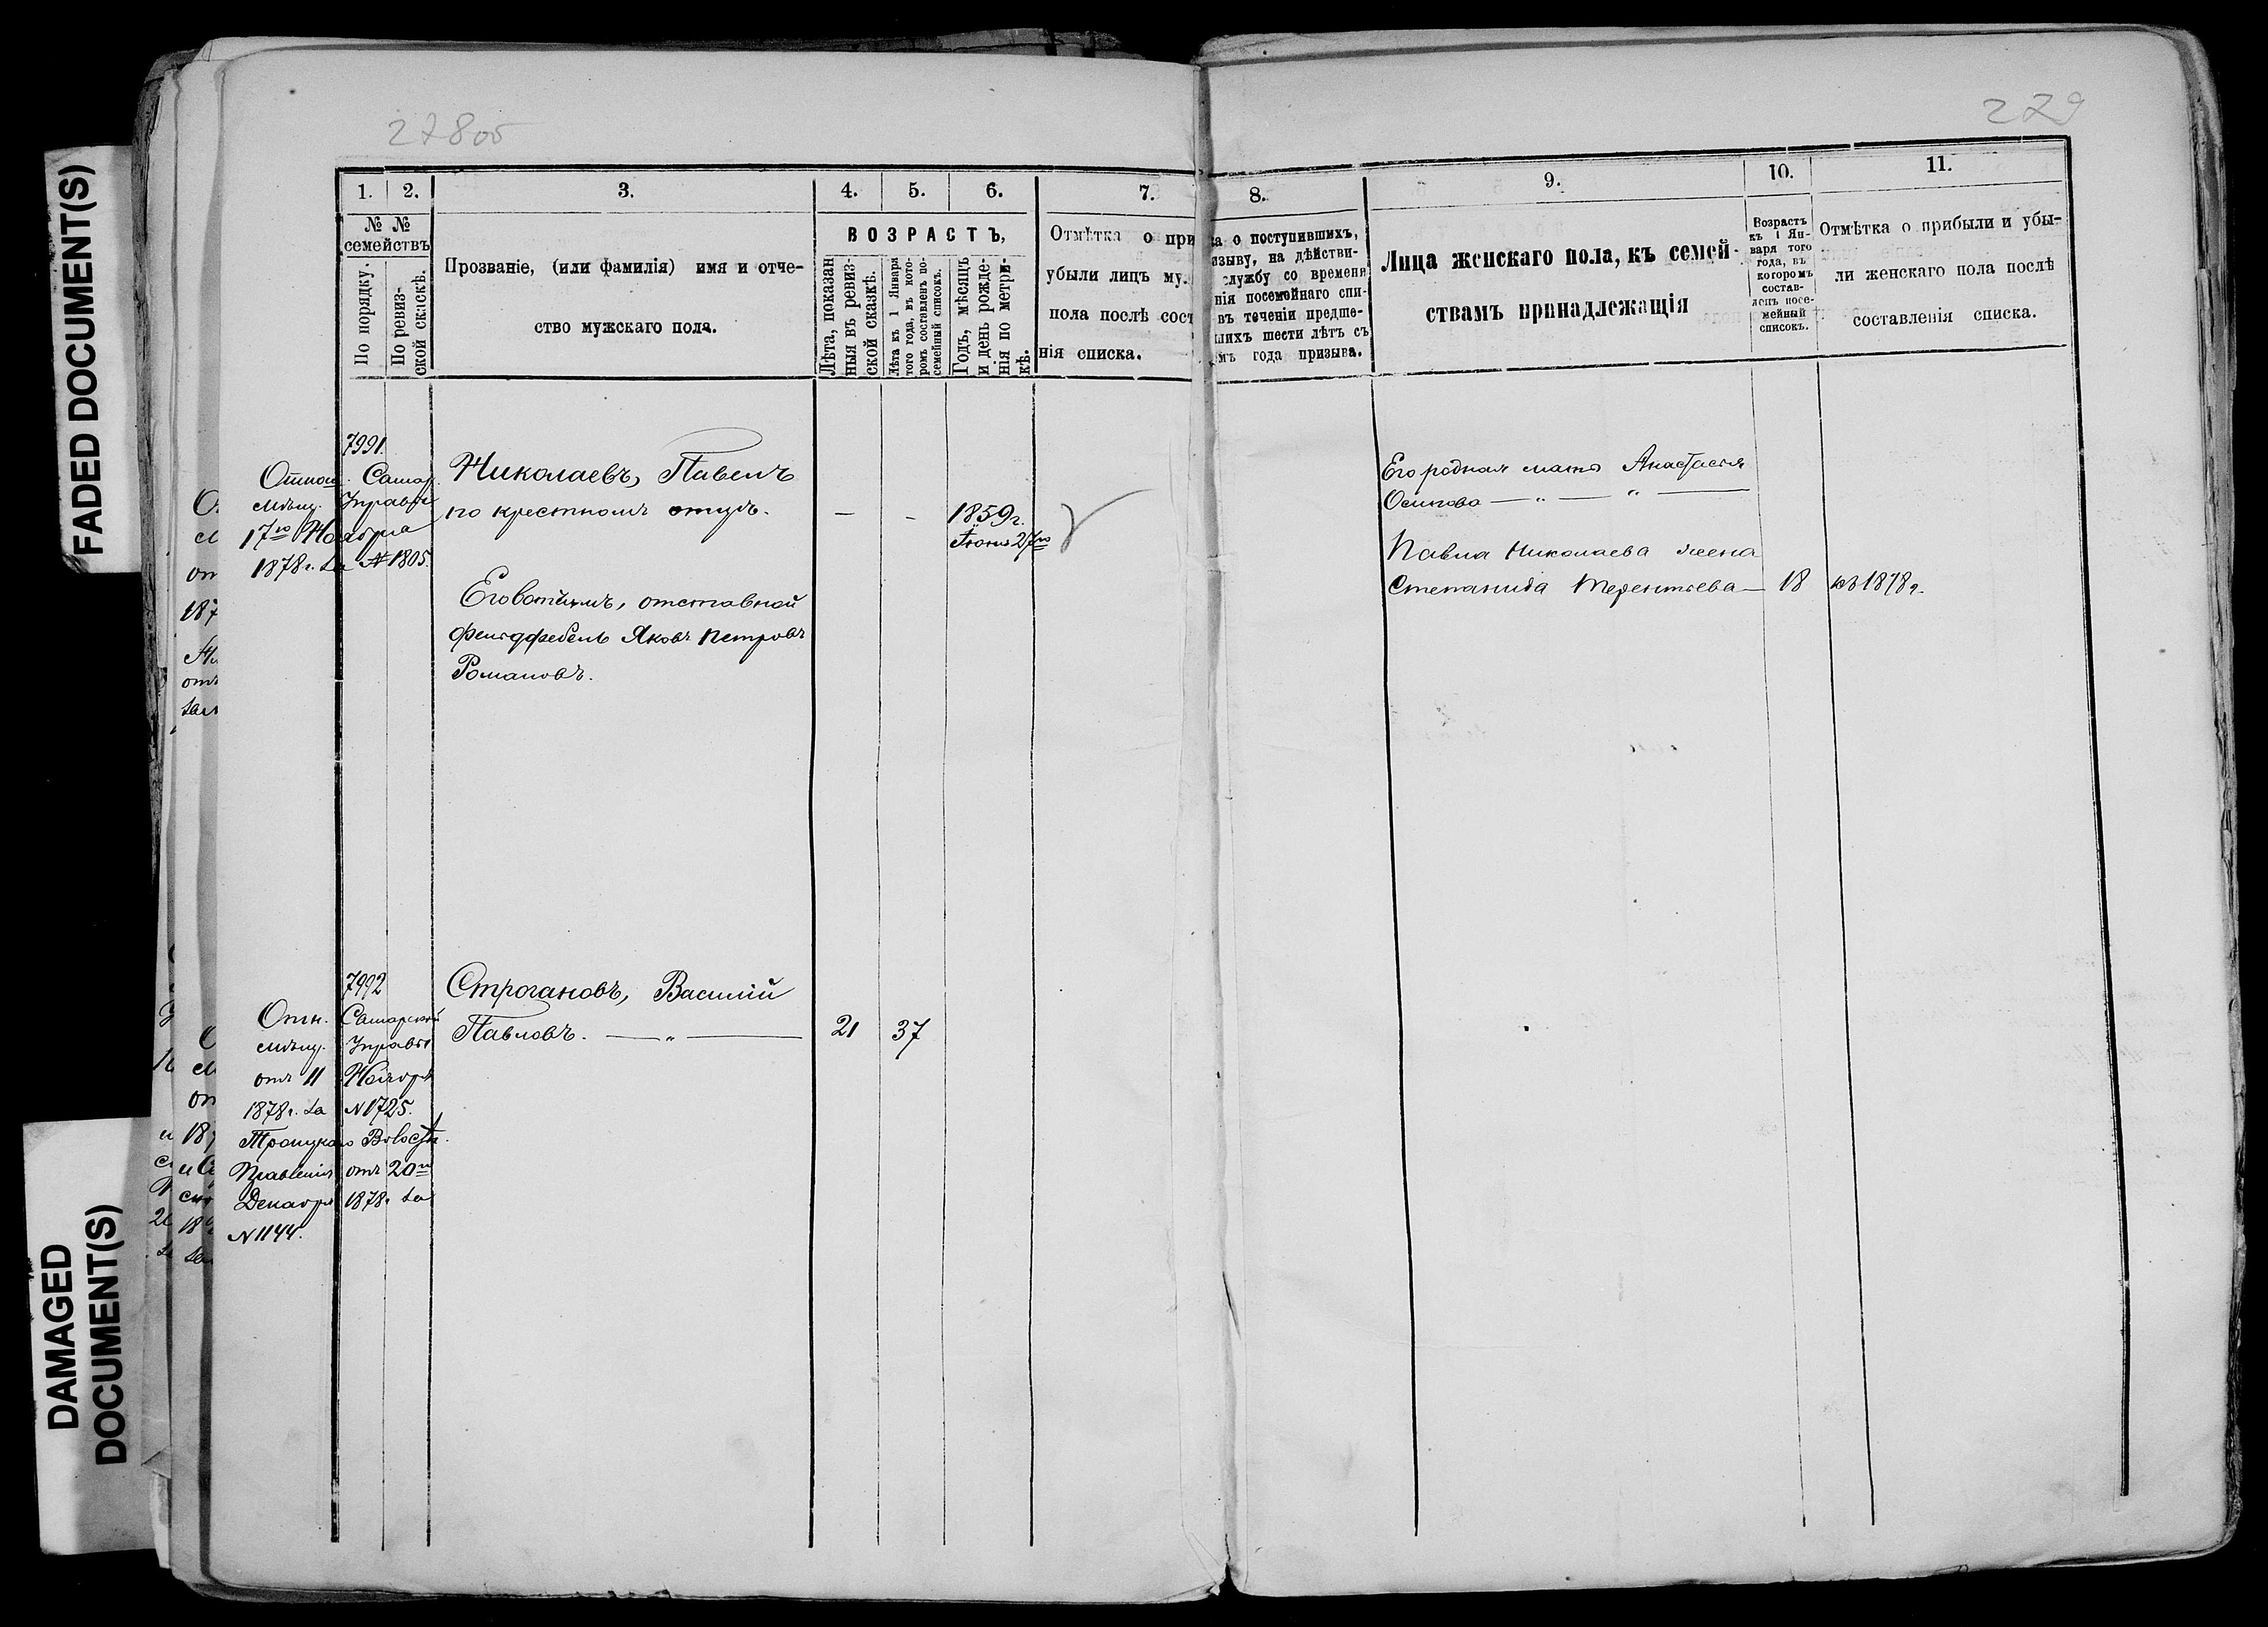 FADED DOCUMENT(S)
DAMAGED
DOCUMENT(S)
278об
279
1.
2.
3.
4.
5.
6.
7.
8.
9.
10.
11.
№ №
семействъ
По порядку.
По ревиз-
ской сказкѣ.
Прозваніе, (или фамилія) имя и отче-
ство мужскаго пола.
ВОЗРАСТЪ,
Лѣта, показан
ныя въ ревиз-
ской сказкѣ.
Лѣта къ 1 Января
того года, въ кото-
ромъ составленъ по-
семейный списокъ.
Годъ, мѣсяцъ
и день рожде-
нія по метри-
кѣ.
Отмѣтка о при
убыли лицъ му.
пола послѣ сост
нія списка.
ка о поступившихъ,
изыву, на дѣйстви-
службу со времени
нія посемейнаго спи-
въ теченіи предше-
шихъ шести лѣтъ съ
мъ года призыва.
Лица женскаго пола, къ семей-
ствамъ принадлежащія
Возрастъ
къ 1 Ян-
варя того
года, въ
которомъ
состав-
ленъ посе-
мейный
списокъ.
Отмѣтка о прибыли и убы-
ли женскаго пола послѣ
составленія списка.
7991.
Отнош. Самар.
мѣщ. Управы
17го Ноября
1878г. за №1805.
Николаевъ, Павелъ
по крестномъ отцѣ.
— - 1859г.
Іюня 27го
Его вотчимъ, отставной
фельдфебель Яковъ Петровъ
Романовъ.
Его родная мать Анастасія
Осипова — „ — „ —
Павла Николаева жена
Степанида Терентьева — 18 въ 1878г.
7992
Отн. Самарской
мѣщ. Управы
отъ 11 Ноября
1878г. за №1725.
Троицкаго Волостн.
Правленія отъ 20го
Декабря 1878г. за
№1144.
Строгановъ, Василій
Павловъ. — „ — 21 37